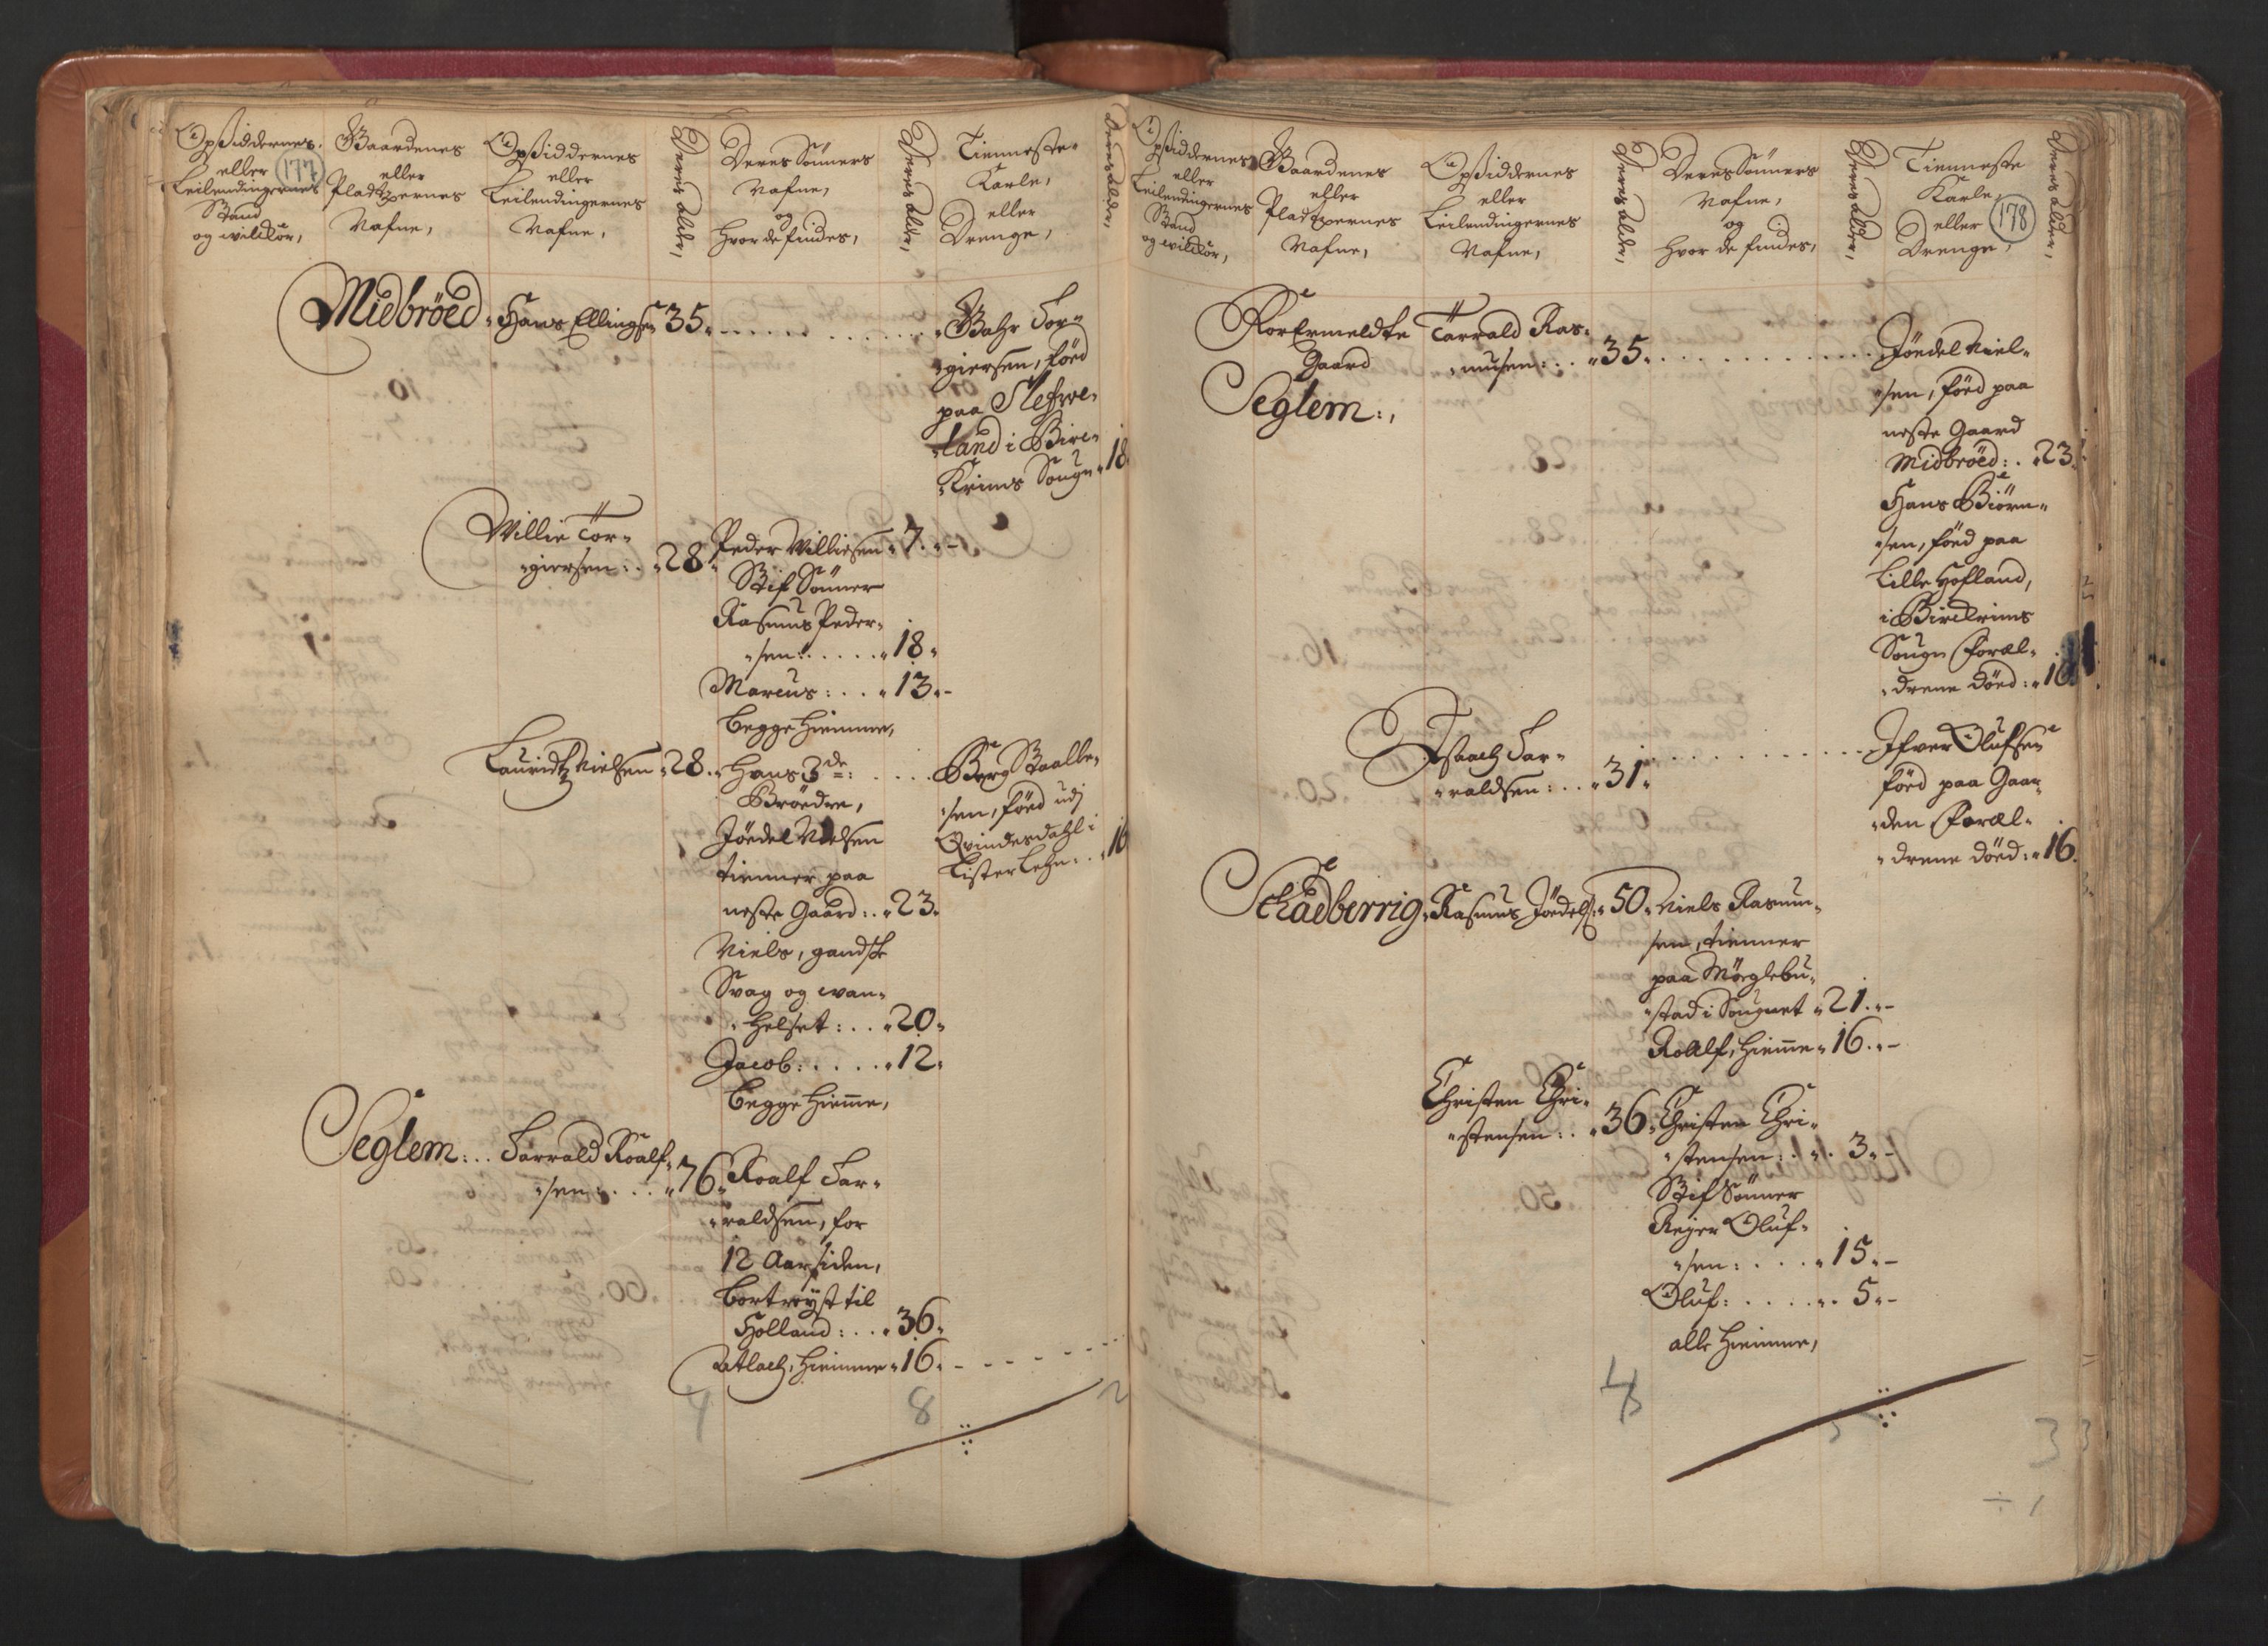 Opsiddernes
eller
Leilendingernes
Stand
og wilckor,
177
Gaardenes
eller
Pladtzernes
Nafne,
Opsiddernes
eller
Leilendingernes
Nafne,
Deres alder,
Deres Sönners
Nafne,
og
hvor de findes,
Deres alder,
Tienneste-
Karle,
eller
Drenge,
Deres alder,
Midbröed Hans Ellingsen 35.
Bahr Tor-
giersen, föed
paa Slefve-
land i Birc-
Krims Sougn 18.
Willie Tor-
giersen: . . 28.
Peder Williesen 7. -
Stif Sönner
Rasmus Peder-
sen: . . . . . 18.
Marcus: . . . 13. -
begge hiemme,
Lauridtz Nielsen 28.
Hans 3de: . . . .
Bröedre,
Jöedel Nielsen
tienner paa
neste Gaard: . . 23.
Niels, gandske
Svag og wan-
helset: . . 20.
Jacob: . . . . . 12.
begge hiemme,
Berg Staalle-
sen, föed udj
Qvindesdahl i
Lister Lehn: . . 16
Seglem: . . Tarrald Roalf-
sen: . . . . 76.
Roalf Tar-
raldsen, for
12 Aar siden,
bortreyst til
Holland: . . . 36.
Atlach, hiemme 16. -
4 8 2
Opsiddernes
eller
Leilendingernes
Stand
og wilckor,
Gaardenes
eller
Pladtzernes
Nafne,
Opsiddernes
eller
Leilendingernes
Nafne,
Deres alder,
Deres Sönners
Nafne,
og
hvor de findes,
Deres alder,
Tienneste
Karle,
eller
Drenge,
178
Deres alder,
Forermeldte
Gaard
Seglem:,
Tarrald Ras-
musen: . . . 35.
Jöedel Niel-
sen, föed paa
neste Gaard
Midbröed: . 23.
Hans Biörn-
sen, föed paa
Lille Hofland,
i Birckrims
Sougn Foræl-
drene döed: 16.
Isaach Tar-
raldsen: . . 31.
Ifver Olufsen
föed paa Gaar-
den Foræl-
drene döed: 16.
Schadberrig Rasmus Jöedels: 50.
Niels Rasmu-
sen, tienner
paa Möeglebu-
stad i Sougnet 21. -
Roalf, hiemme 16. -
Christen Chri-
stensen: . . 36.
Christen Chri-
stensen: . . 3. -
Stif Sönner
Rejer Oluf-
sen: . . . . 15. -
Oluf: . . . . . 5. -
alle hiemme,
4
5
3 3
÷ 1